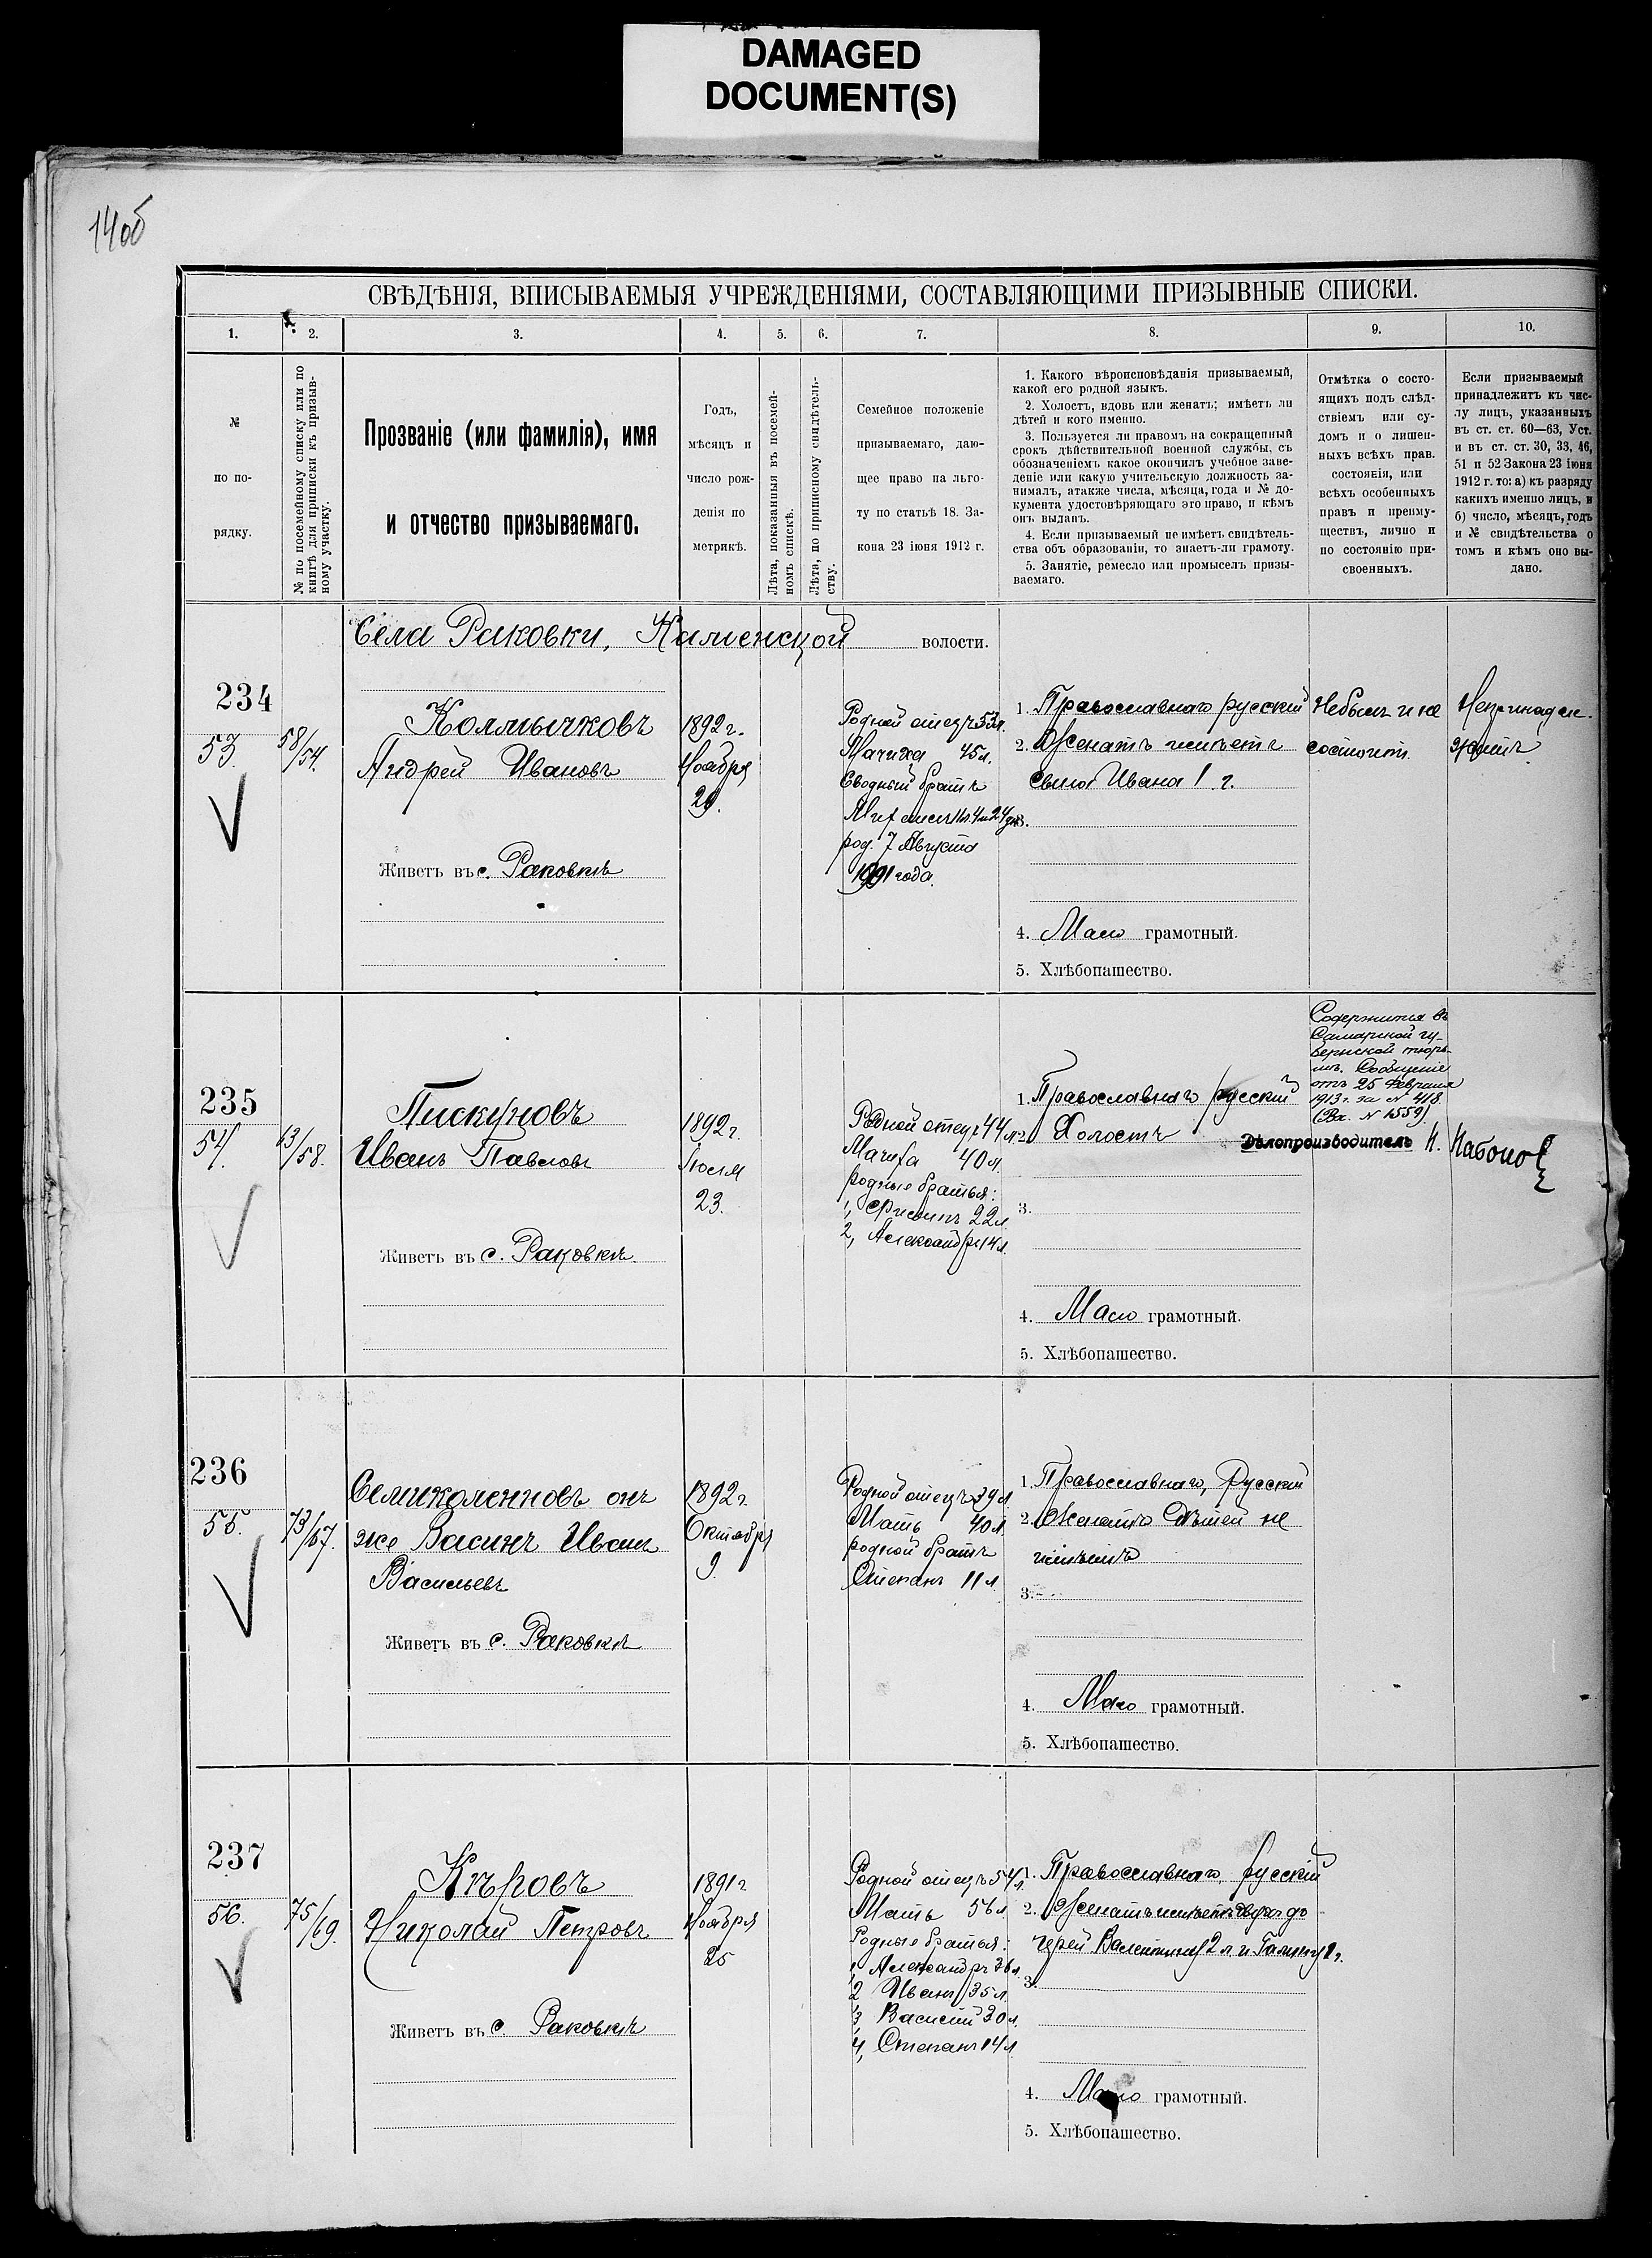 DAMAGED
DOCUMENT(S)
14об
СВѢДѢНІЯ, ВПИСЫВАЕМЫЯ УЧРЕЖДЕНІЯМИ, СОСТАВЛЯЮЩИМИ ПРИЗЫВНЫЕ СПИСКИ.
1.
2.
3.
4.
5.
6.
7.
8.
9.
10.
№
по по-
рядку.
№ по посемейному списку или по
книгѣ для приписки къ призыв-
ному участку.
Прозваніе (или фамилія), имя
и отчество призываемаго.
Годъ,
мѣсяцъ и
число рож-
денія по
метрикѣ.
Лѣта, показанныя въ посемей-
номъ спискѣ.
Лѣта, по приписному свидѣтель-
ству.
Семейное положеніе
призываемаго, даю-
щее право на льго-
ту по статьѣ 18. За-
кона 23 іюня 1912 г.
1. Какого вѣроисповѣданія призываемый,
какой его родной языкъ.
2. Холостъ, вдовъ или женатъ; имѣетъ ли
дѣтей и кого именно.
3. Пользуется ли правомъ на сокращенный
срокъ дѣйствительной военной службы, съ
обозначеніемъ какое окончилъ учебное заве-
деніе или какую учительскую должность за-
нималъ, атакже числа, мѣсяца, года и № до-
кумента удостовѣряющаго это право, и кѣмъ
онъ выданъ.
4. Если призываемый не имѣетъ свидѣтель-
ства объ образованіи, то знаетъ-ли грамоту.
5. Занятіе, ремесло или промыселъ призы-
ваемаго.
Отмѣтка о состо-
ящихъ подъ слѣд-
ствіемъ или су-
домъ и о лишен-
ныхъ всѣхъ прав.
состоянія, или
всѣхъ особенныхъ
правъ и преиму-
ществъ, лично и
по состоянію при-
своенныхъ.
Если призываемый
принадлежитъ къ чис-
лу лицъ, указанныхъ
въ ст. ст. 60—63, Уст.
и въ ст. ст. 30, 33, 46,
51 и 52 Закона 23 іюня
1912 г. то: а) къ разряду
какихъ именно лицъ, и
б) число, мѣсяцъ, годъ
и № свидѣтельства о
томъ и кѣмъ оно вы-
дано.
Села Раковки, Каменской волости.
234
53.
58/54.
Колмычковъ
Андрей Ивановъ
Живетъ въ с. Раковкѣ
1892 г.
Ноября
29.
Родной отецъ 53л.
Мачиха 45л.
Сводный братъ
род. 7 Августа
1991 года.
1. Православнаго русскій
2. Женатъ имѣетъ
сына Ивана 1 г.
3.
4. Мало грамотный.
5. Хлѣбопашество.
Небылъ и не
состоитъ.
Непринадле-
житъ
235
54.
63/58.
Пискуновъ
Иванъ Павловъ
Живетъ въ с. Раковкѣ.
1892 г.
Іюля
23.
Родной отецъ 44 л.
Мачиха 40 л.
родные братья:
22л.
2, Александръ 14л.
1. Православнаго русскій
2. Холостъ
3.
4. Мало грамотный.
5. Хлѣбопашество.
Содержится въ
Самарской гу-
бернской тюрь-
мѣ. Сообщеніе
отъ 25 Февраля
1913 г. за № 418
(Вх. № 1559).
Дѣлопроизводитель Н. Набоко
236
55.
73/67.
Семиколенновъ онъ
же Васинъ Иванъ
Васильевъ
Живетъ въ с. Раковкѣ
1892 г.
Октября
9.
Родной отецъ 39 л.
Мать 40 л.
родной братъ
Степанъ 11 л.
1. Православнаго, Русскій
2. Женатъ Дѣтей не
имѣетъ
3.
4. Мало грамотный.
5. Хлѣбопашество.
237
56.
75/69.
Кѣровъ
Николай Петровъ
Живетъ въ с. Раковкѣ
1891 г
Ноября
25
Родной отецъ 54 л.
Мать 56 л.
Родные братья:
1, Александръ 36 л.
2 Иванъ 35 л.
3, Василій 30 л.
4, Степанъ 14 л.
1. Православнаго, русскій
2. Женатъ имѣетъ двухъ до-
черей Валентину 2 л. и Галину 1 г.
3.
4. Мало грамотный.
5. Хлѣбопашество.